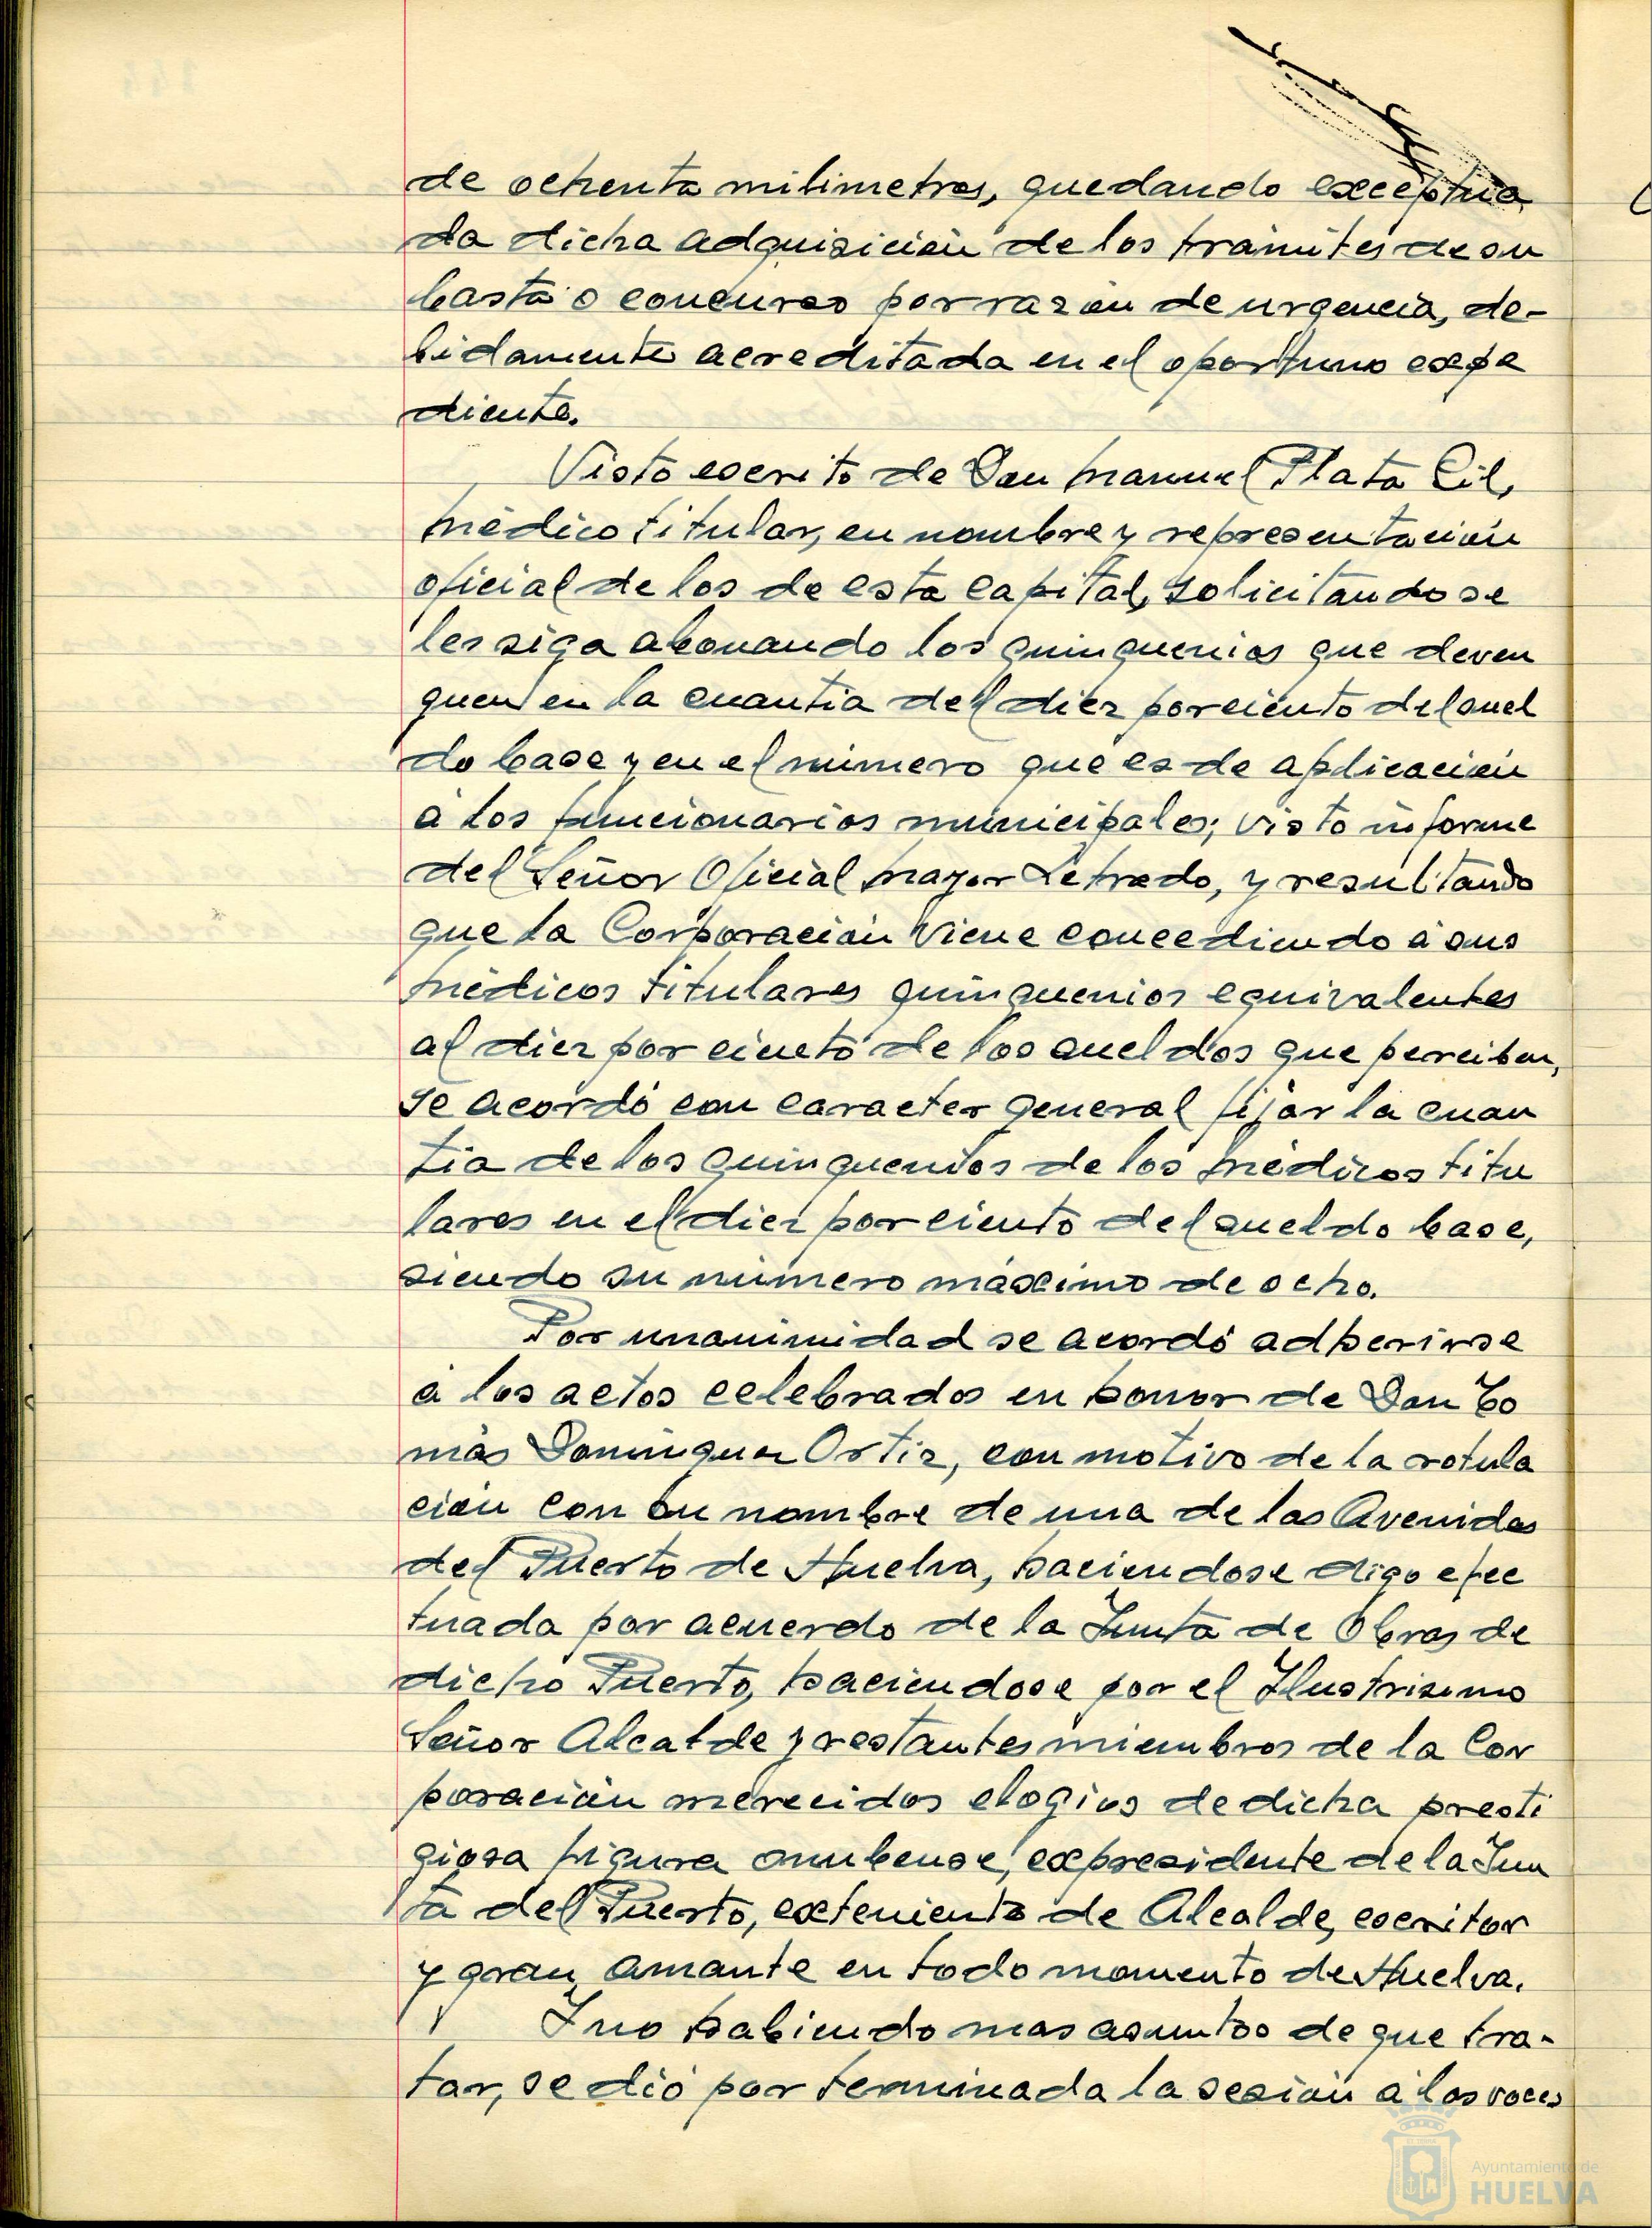 de ochenta milimetros, quedando exceptua
da dicha adquisición de los trámites de su
basta o concurso por razón de urgencia, de-
bidamente acreditada en el oportuno expe
diente.
Visto escrito de Don Manuel Plata Gil,
médico titular, en nombre y representación
oficial de los de esta capital, solicitando se
les siga abonando los quinquenios que deven
guen en la cuantia del diez por ciento del suel
do base y en el número que es de aplicación
á los funcionarios municipales; visto informe
del Señor Oficial Mayor Letrado, y resultando
que la Corporación viene concediendo á sus
médicos titulares quinquenios equivalentes
al diez por ciento de los sueldos que perciben,
se acordó con caracter general fijar la cuan
tia de los quinquenios de los médicos titu
lares en el diez por ciento del sueldo base,
siendo su número máximo de ocho.
Por unanimidad se acordó adherirse
á los actos celebrados en honor de Don To
más Dominguez Ortiz, con motivo de la rotula
ción con su nombre de una de las Avenidas
del Puerto de Huelva, haciendose digo efec
tuada por acuerdo de la Junta de Obras de
dicho Puerto, haciendose por el Ilustrisimo
Señor Alcalde y restantes miembros de la Cor
poración merecidos elogios de dicha presti
giosa figura onubense, expresidente de la Jun
ta del Puerto, exteniente de Alcalde, escritor
y gran amante en todo momento de Huelva.
Y no habiendo mas asuntos de que tra-
tar, se dió por terminada la sesión á las
Ayuntamiento de
HUELVA